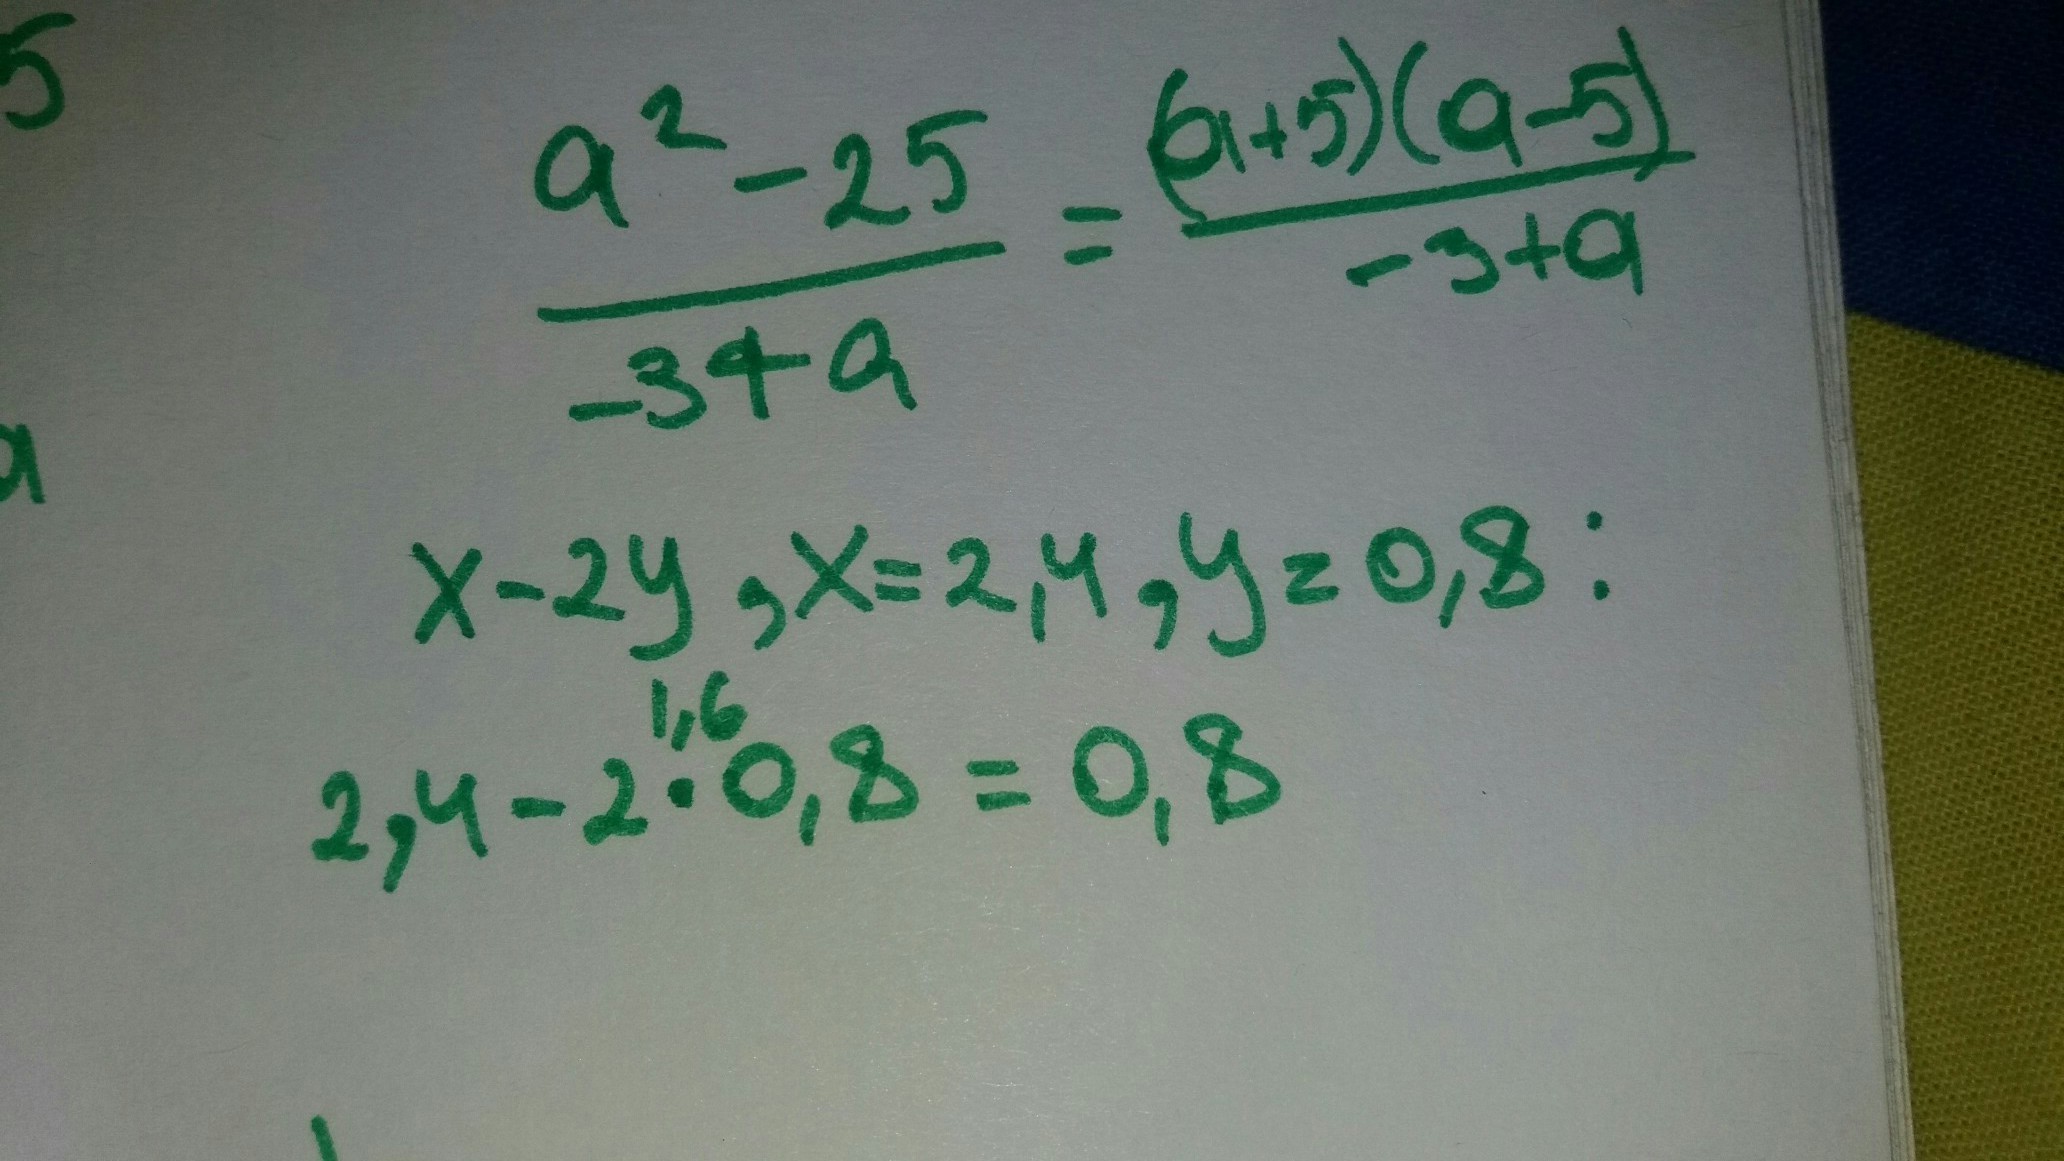 5
a² - 25 / -3 + a = (a+5)(a-5) / -3+a
a
x-2y, x=2,4, y=0,8:
1,6
2,4-2·0,8 = 0,8